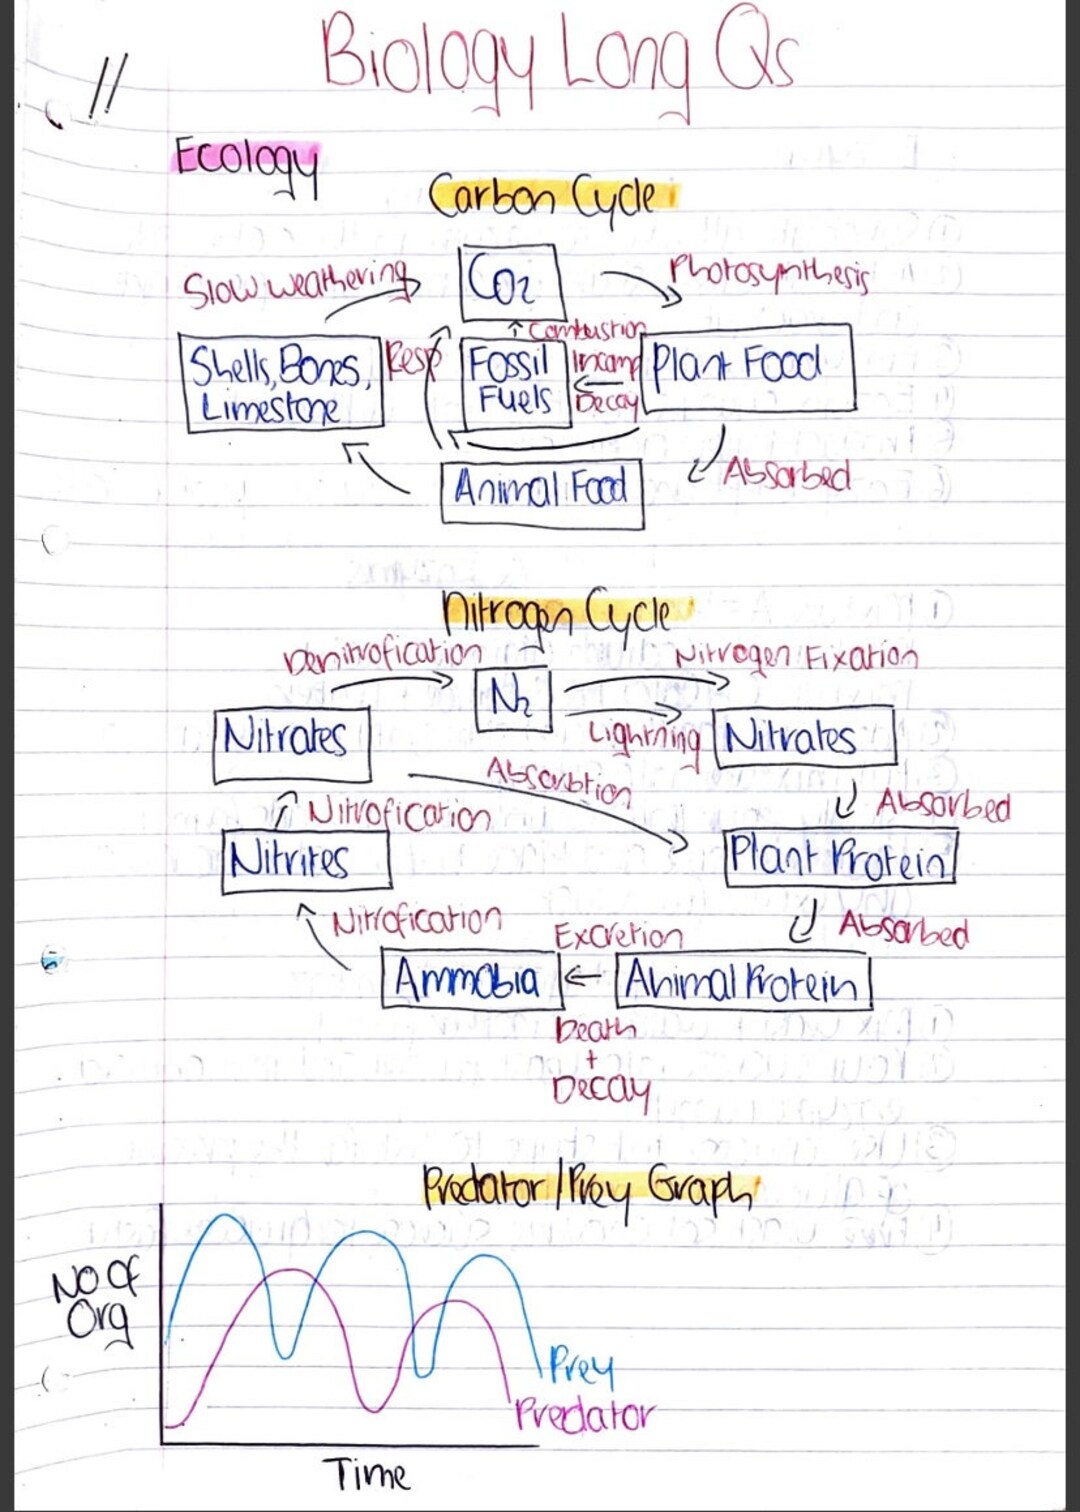 Biology Long Qs
Ecology
Carbon Cycle
Slow weathering
CO2
Photosynthesis
Combustion
Shells, Bones,
Limestone
Resp
Fossil
Fuels
Incomp
Decay
Plant Food
Absorbed
Animal Food
Nitrogen Cycle
Denitrofication
N2
Nitrogen Fixation
Lightning
Nitrates
Nitrates
Absorbtion
Nitrofication
Absorbed
Nitrites
Plant Protein
Nitrofication
Absorbed
Excretion
Ammobia
Animal Protein
Death
+
Decay
Predator/Prey Graph
No Of
Org
Prey
Predator
Time